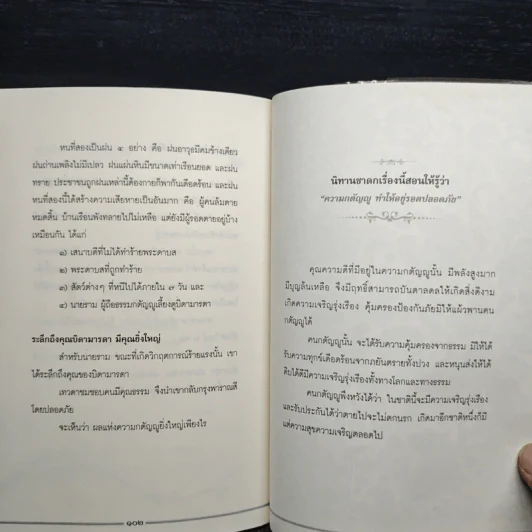 หนที่สองเป็นฝน ๔ อย่าง คือ ฝนอาวุธมีคมข้างเดียว
ฝนถ่านเพลิงไม่มีเปลว ฝนแผ่นหินมีขนาดเท่าเรือนยอด และฝน
ทราย ประชาชนถูกฝนเหล่านี้ต้องกายก็พากันเดือดร้อน และฝน
หนที่สองนี้ได้สร้างความเสียหายเป็นอันมาก คือ ผู้คนล้มตาย
หมดสิ้น บ้านเรือนพังทลายไปไม่เหลือ แต่ยังมีผู้รอดตายอยู่บ้าง
เหมือนกัน ได้แก่
๑) เสนาบดีที่ไม่ได้ทำร้ายพระดาบส
๒) พระดาบสที่ถูกทำร้าย
๓) สัตว์ต่างๆ ที่หนีไปได้ภายใน ๗ วัน และ
๔) นายราม ผู้ถือธรรมกตัญญูเลี้ยงดูบิดามารดา
ระลึกถึงคุณบิดามารดา มีคุณยิ่งใหญ่
สำหรับนายราม ขณะที่เกิดวิกฤตการณ์ร้ายแรงนั้น เขา
ได้ระลึกถึงคุณของบิดามารดา
เทวดาชมชอบคนมีคุณธรรม จึงนำเขากลับกรุงพาราณสี
โดยปลอดภัย
จะเห็นว่า ผลแห่งความกตัญญูยิ่งใหญ่เพียงไร
๑๐๒
นิทานชาดกเรื่องนี้สอนให้รู้ว่า
"ความกตัญญู ทำให้อยู่รอดปลอดภัย"
คุณความดีที่มีอยู่ในความกตัญญูนั้น มีพลังสูงมาก
มีบุญล้นเหลือ จึงมีฤทธิ์สามารถบันดาลดลให้เกิดสิ่งดีงาม
เกิดความเจริญรุ่งเรือง คุ้มครองป้องกันภัยมิให้แผ้วพานคน
กตัญญูได้
คนกตัญญูนั้น จะได้รับความคุ้มครองจากธรรม มิให้ได้
รับความทุกข์เดือดร้อนจากภยันตรายทั้งปวง และหนุนส่งให้ได้
ดิบได้ดีมีความเจริญรุ่งเรืองทั้งทางโลกและทางธรรม
คนกตัญญูพึงหวังได้ว่า ในชาตินี้จะมีความเจริญรุ่งเรือง
และรับประกันได้ว่าตายไปจะไม่ตกนรก เกิดมาอีกชาติหนึ่งก็มี
แต่ความสุขความเจริญตลอดไป